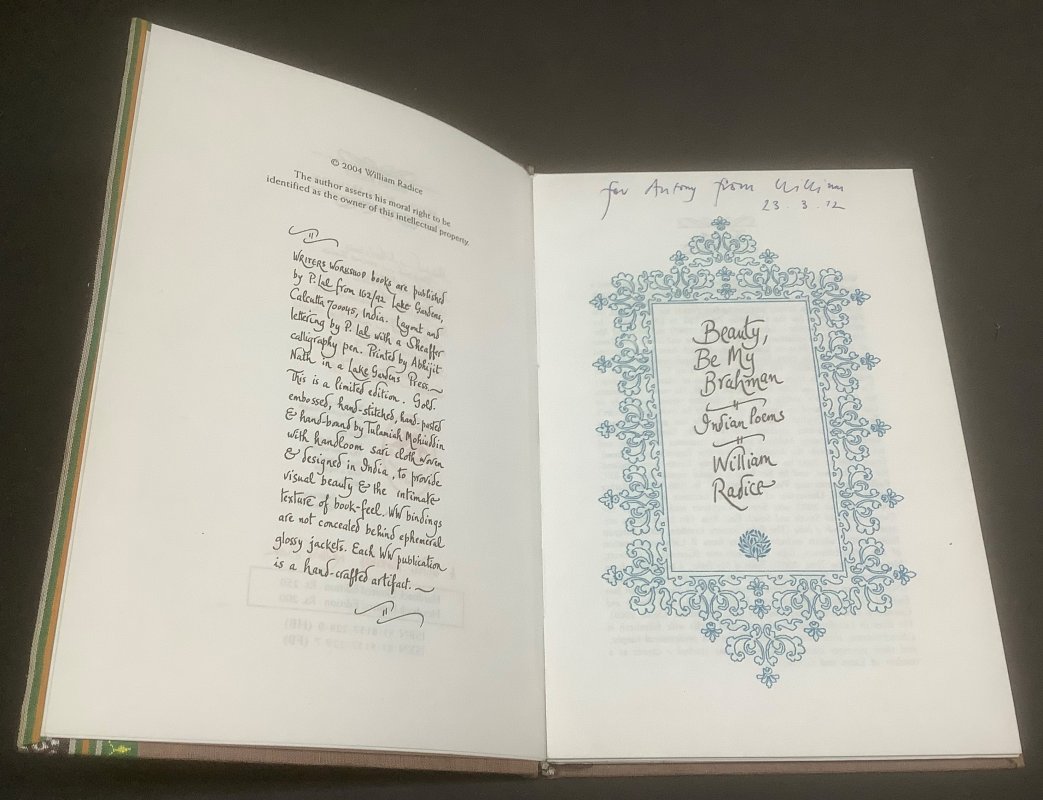 © 2004 William Radice
The author asserts his moral right to be
identified as the owner of this intellectual property.
WRITERS WORKSHOP books are published
by P. Lal from 162/92 Lake Gardens,
Calcutta 700045, India. Layout and
lettering by P. Lal with a Sheaffer
calligraphy pen. Printed by Abhijit
Nath in a Lake Gardens Press.
This is a limited edition. Gold-
embossed, hand-stitched, hand-pasted
& hand-bound by Tulamiah Mohiuddin
with handloom sari cloth woven
& designed in India, to provide
visual beauty & the intimate
texture of book-feel. WW bindings
are not concealed behind ephemeral
glossy jackets. Each WW publication
is a hand-crafted artifact.
for Antony from William
23.3.12
Beauty,
Be My
Brahman
Indian Poems
William
Radice